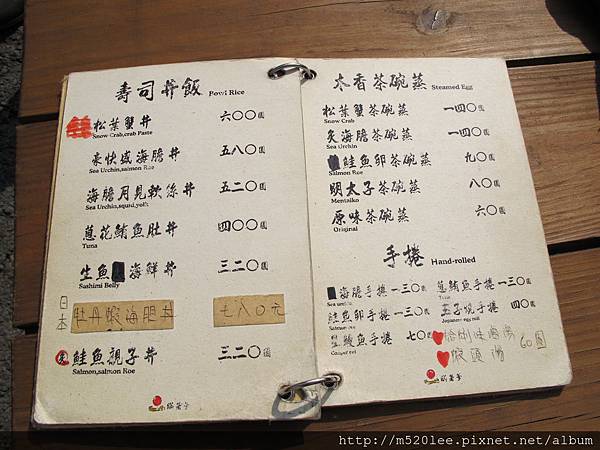 壽司丼飯 Powl Rice
松葉蟹丼 六〇〇圓
Snow Crab,crab Paste
豪快盛海膽丼 五八〇圓
Sea Urchin,salmon Roe
海膽月見軟絲丼 五二〇圓
Sea Urchin,squid,yolk
蔥花鮪魚肚丼 四〇〇圓
Tuna
生魚 海鮮丼 三二〇圓
Sashimi Belly
日本 牡丹蝦海胆丼 七八〇元
鮭魚親子丼 三二〇圓
Salmon,salmon Roe
木香茶碗蒸 Steamed Egg
松葉蟹茶碗蒸 一四〇圓
Snow Crab
炙海膽茶碗蒸 一四〇圓
Sea Urchin
鮭魚卵茶碗蒸 九〇圓
Salmon Roe
明太子茶碗蒸 八〇圓
Mentaiko
原味茶碗蒸 六〇圓
Original
手捲 Hand-rolled
海膽手捲 一三〇圓
Sea urchin
蔥鮪魚手捲 一三〇圓
Tuna
鮭魚卵手捲 一三〇圓
Salmon roe
玉子燒手捲 四〇圓
Japanese egg roll
星鰻魚手捲 七〇圓
Conger eel
蝦頭湯 60圓
http://m520lee.pixnet.net/album